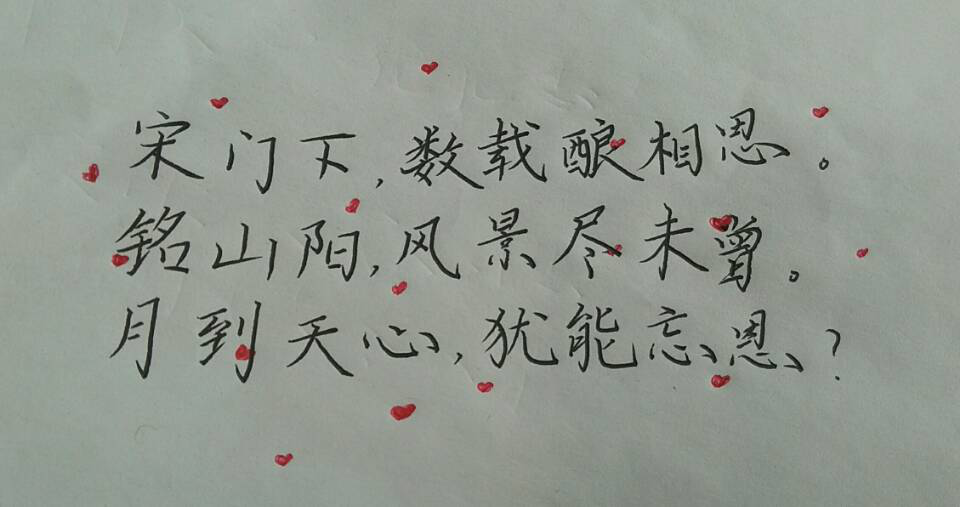 宋门下,数载酿相思。
铭山阳,风景尽未曾。
月到天心,犹能忘恩?